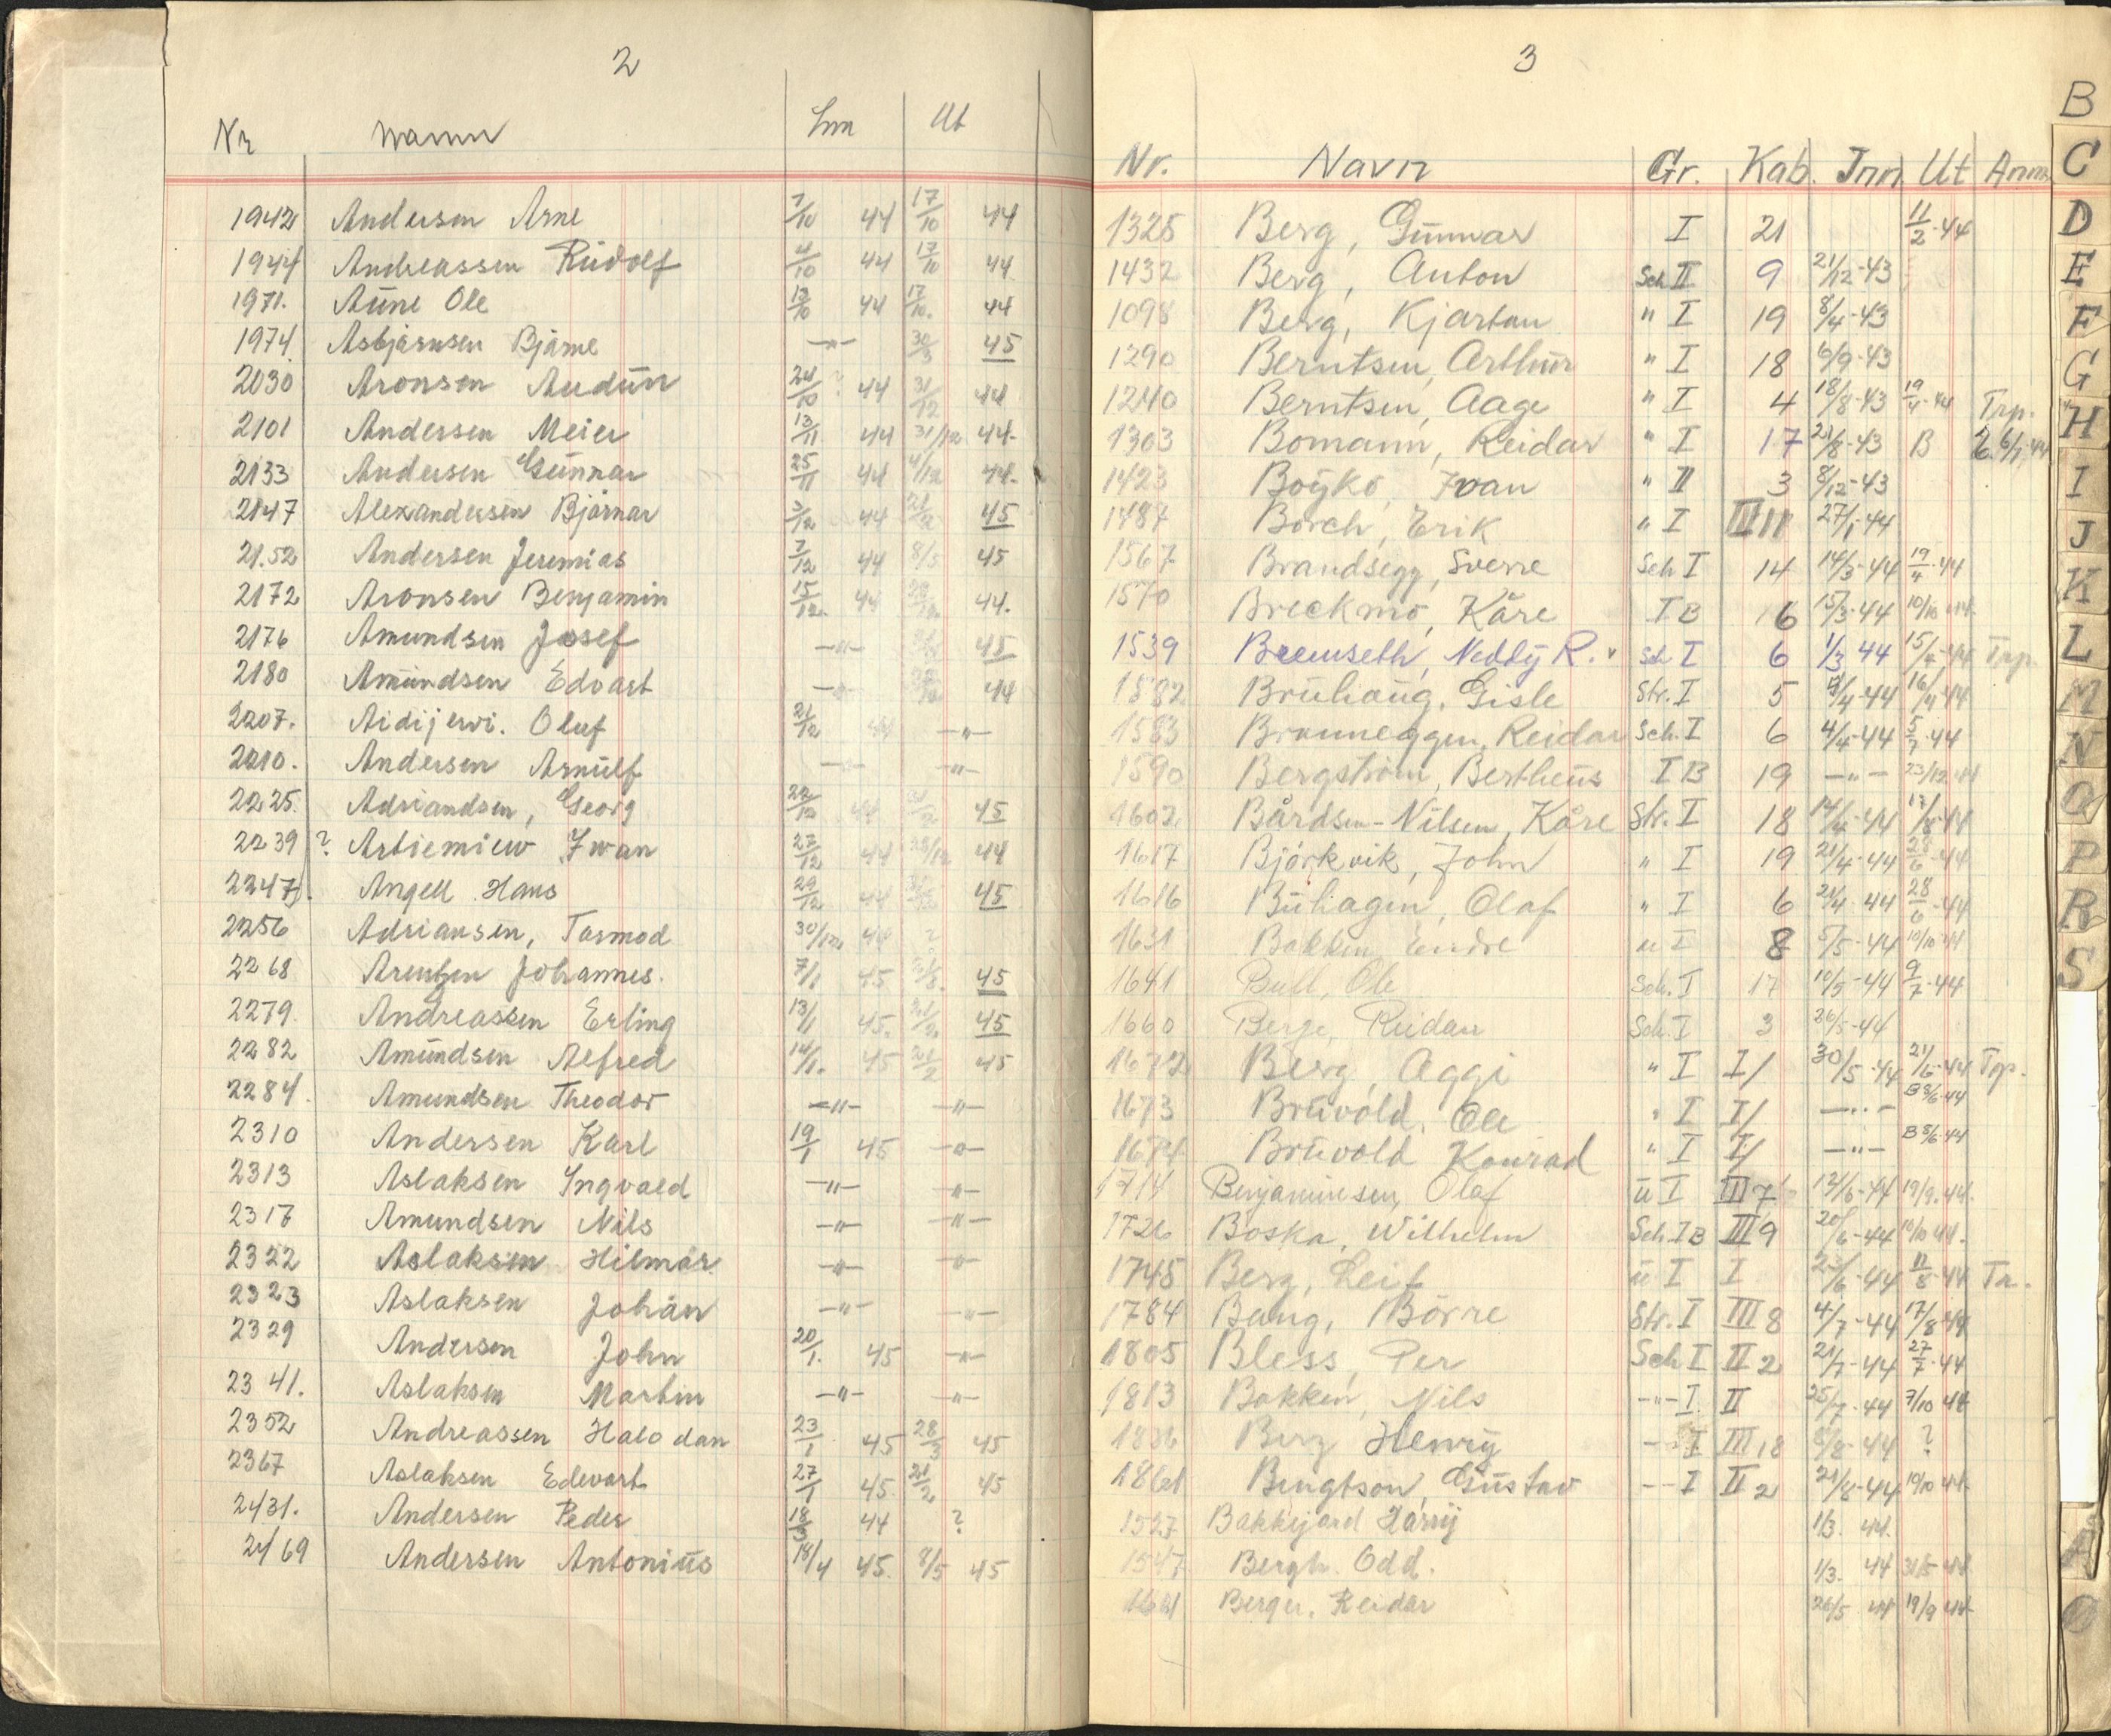 2
Nr Inn Ut
1942 Andersen Arne 7/10 44 17/10 44
1944 Andreassen Rudolf 4/10 44 17/10 44
1971. Aune Ole 13/10 44 17/10. 44
1974. Asbjørnsen Bjarne —"— 30/3 45
2030 Aronsen Audun 24/10 44 31/12 44
2101 Anderssen Meier 13/11 44 31/12 44-
2133 Andersen Gunnar 25/11 44 4/12 44-
2147 Alexandersen Bjørnar 3/12 44 45
2152 Andersen Jeremias 7/12 44 8/5 45
2172 Aronsen Benjamin 15/12. 44 44.
2176 Amundsen Josef —"— 45
2180 Amundsen Edvart —"— 44
2207. Aidijervi. Oluf 21/12 44 —"—
2210. Andersen Arnulf —"— —"—
2225. Adriandsen, Georg 22/12 44 45
2239 ? Artiemiew Iwan 27/12 44 44
2247. Angell Hans 29/12 44 45
2256 Adriansen, Tormod 30/12 44 ?
2268 Arentzen Johannes. 7/1 45 45
2279. Andreassen Erling 13/1 45. 21/2. 45
2282 Amundsen Alfred 14/1. 45 21/2 45
2284. Amundsen Theodor —"— —"—
2310 Andersen Karl 19/1 45 —"—
2313 Aslaksen Ingvald —"— —"—
2317 Amundsen Nils —"— —"—
2322 Aslaksen Hilmar —"— —"—
2323 Aslaksen Johan —"— —"—
2329 Andersen John 20/1. 45 —"—
2341. Aslaksen Martin —"— —"—
2352 Andreassen Halvdan 23/1 45 28/3 45
2367 Aslaksen Edevart 27/1 45 21/2 45
2431. Andersen Peder 18/3 44 ?
2469 Andersen Antonius 18/4 45. 8/5 45
3
Nr. Navn Gr. Kab. Inn Ut Anm.
1325 Berg, Gunnar I 21 11/2-44
1432 Berg, Anton Sch II 9 21/12-43
1098 Berg, Kjartan " I 19 8/4-43
1290 Berntsen, Arthur " I 18 6/9-43
1240 Berntsen, Aage " I 4 18/8-43 19/4-44 Trp.
1303 Bomann, Reidar " I 17 21/8-43 B 6/1-44
1423 Boyko, Ivan " II 3 8/12-43
1487 Borch, Erik " I III 11 27/1-44
1567 Brandsegg, Sverre Sch I 14 14/3-44 19/4-44
1570 Breckmo, Kåre I B 6 15/3-44 10/10-44
1539 Breuseth, Neddy R. Sch I 6 1/3 44 15/4-44 Trp.
1582 Bruhaug, Gisle Str. I 5 4/4-44 16/4-44
1583 Brønneggen, Reidar Sch. I 6 4/4-44 5/7-44
1590 Bergstrøm, Bertheus I B 19 —"— 23/12-44
1602. Bårdsen-Nilsen, Kåre Str. I 18 14/4-44 17/8-44
1617 Björkvik, John " I 19 21/4-44 28/6-44
1616 Buhagen, Olaf " I 6 21/4-44 28/6-44
1631 Bakken Endre u I 8 5/5-44 10/10-44
1641 Bull, Ole Sch. I 17 10/5-44 9/7-44
1660 Berge, Reidar Sch. I 3 26/5-44
1672 Berg, Aggi " I I/ 30/5-44 21/6-44 Trp.
1673 Bruvold, Ole " I I/ —"— B 8/6-44
1674 Bruvold Konrad " I I/ —"— B 8/6-44
1714 Benjaminsen, Olaf u I III 7 12/6-44 19/9.44.
1726 Boska, Wilhelm Sch. I B III 9 20/6-44 10/10 44.
1745 Berg, Leif u I I 23/6-44 11/8-44 Tr.
1784 Bang, Börre Str. I III 8 4/7-44 17/8-44
1805 Bless, Per Sch I II 2 21/7-44 27/7-44
1813 Bakken, Nils -"- I. II 25/7-44 7/10 44
1836 Berg Henry -- I III 18 8/8-44 ?
1861 Bengtson, Gustav -- I II 2 21/8-44 10/10 44
1527 Bakkejord Harry 1/3. 44.
1547 Bergh. Odd. 1/3. 44 31/5-44
Berger. Reidar 26/5 44 19/9 44
B
C
D
E
F
G
H
I
J
K
L
M
N
O
P
R
S
A